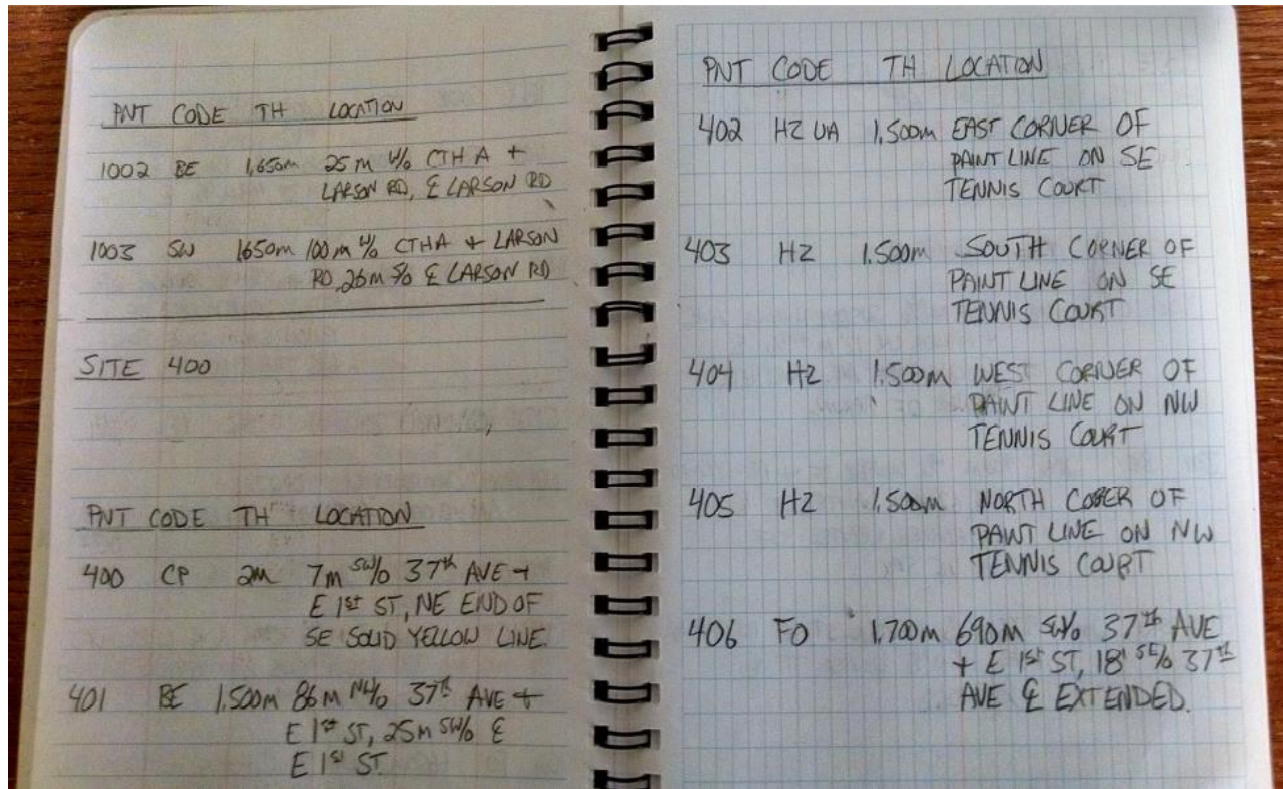 PNT CODE TH LOCATION
1002 BE 1,650m 25 m W/o CTH A +
LARSON RD, ℄ LARSON RD
1003 SW 1650m 100 m W/o CTHA + LARSON
RD, 26m S/o ℄ LARSON RD
SITE 400
PNT CODE TH LOCATION
400 CP 2m 7m SW/o 37th AVE +
E 1ST ST, NE END OF
SE SOLID YELLOW LINE.
401 BE 1,500m 86m NW/o 37th AVE +
E 1ST ST, 25m SW/o ℄
E 1ST ST.
PNT CODE TH LOCATION
402 HZ UA 1,500m EAST CORNER OF
PAINT LINE ON SE
TENNIS COURT
403 HZ 1.500m SOUTH CORNER OF
PAINT LINE ON SE
TENNIS COURT
404 HZ 1.500m WEST CORNER OF
PAINT LINE ON NW
TENNIS COURT
405 HZ 1,500m NORTH OF
PAINT LINE ON NW
TENNIS COURT
406 FO 1.700m 690m SW/o 37th AVE
+ E 1ST ST, 18' SE/o 37th
AVE ℄ EXTENDED.